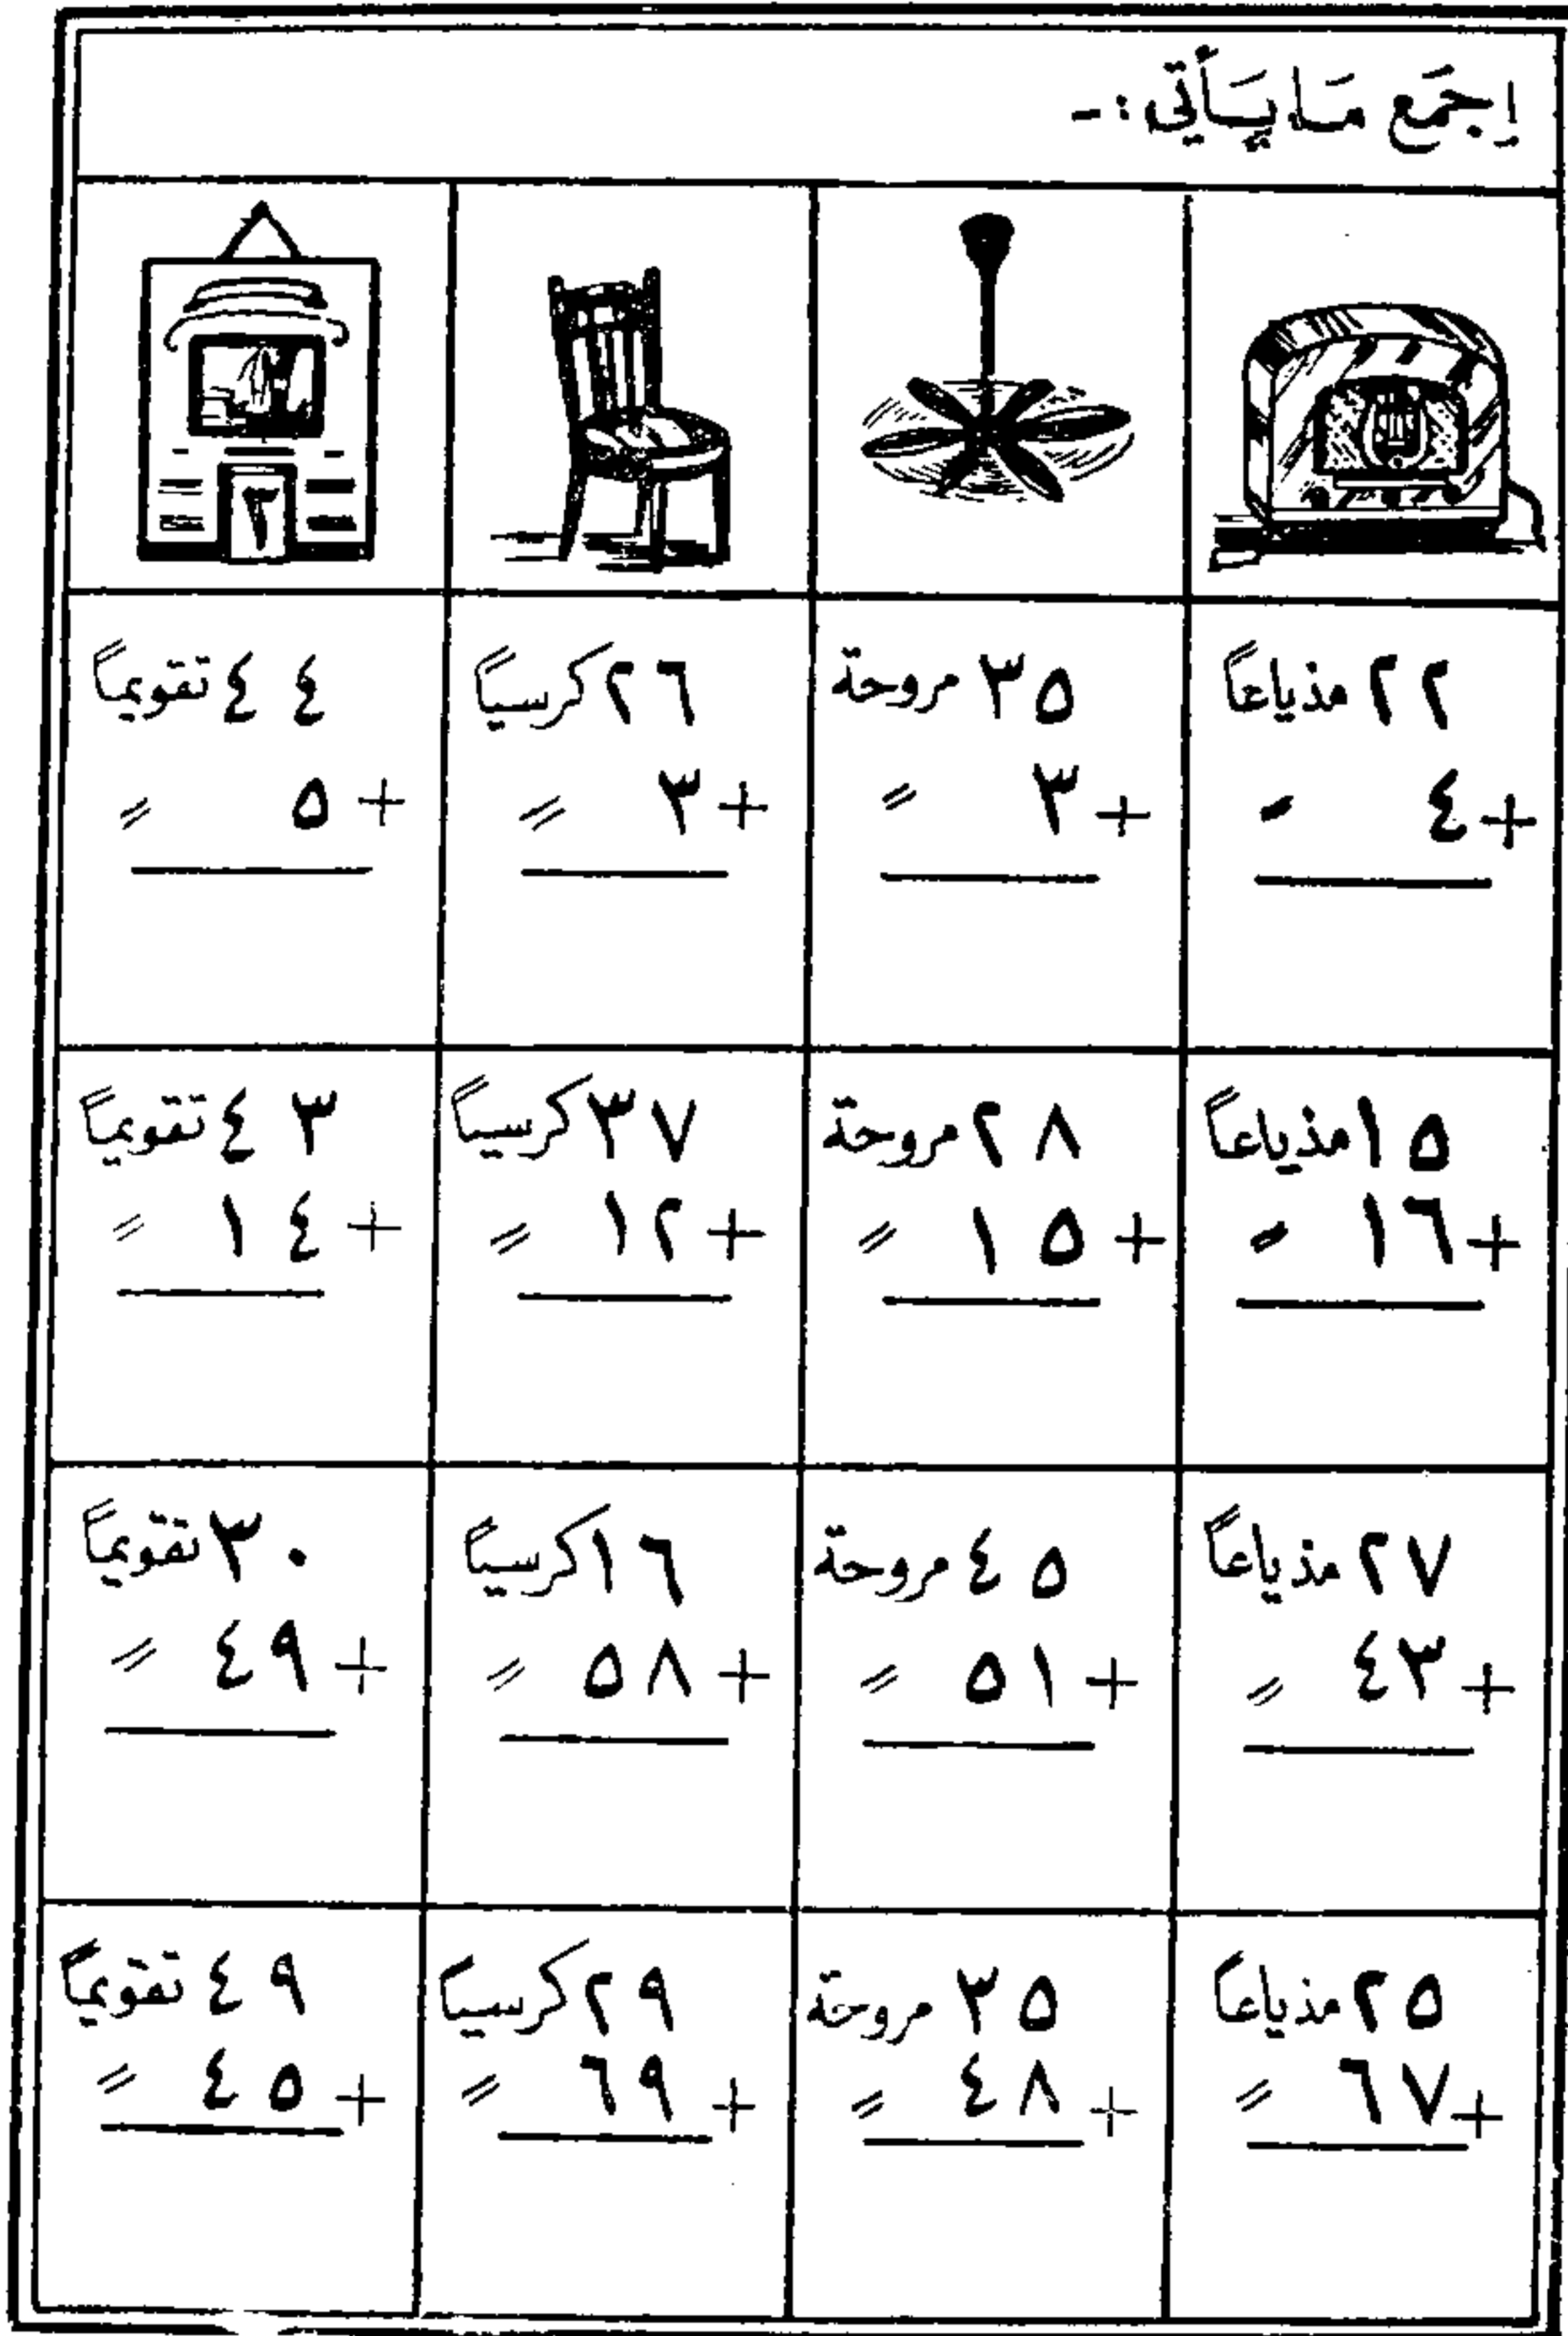 اِجمَع مَا يَأتي :-
٣
٢٢ مذياعاً
+ ٤ 〃
٣٥ مروحة
+ ٣ 〃
٢٦ كرسياً
+ ٣ 〃
٤٤ تقويماً
+ ٥ 〃
١٥ مذياعاً
+ ١٦ 〃
٢٨ مروحة
+ ١٥ 〃
٣٧ كرسياً
+ ١٢ 〃
٤٣ تقويماً
+ ١٤ 〃
٢٧ مذياعاً
+ ٤٣ 〃
٤٥ مروحة
+ ٥١ 〃
١٦ كرسياً
+ ٥٨ 〃
٣٠ تقويماً
+ ٤٩ 〃
٢٥ مذياعاً
+ ٦٧ 〃
٣٥ مروحة
+ ٤٨ 〃
٢٩ كرسياً
+ ٦٩ 〃
٤٩ تقويماً
+ ٤٥ 〃